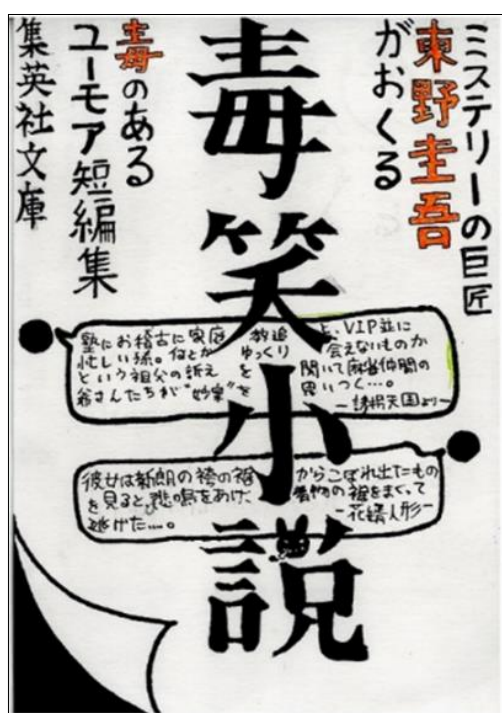 ミステリーの巨匠
東野圭吾
がおくる
毒笑小説
毒のある
ユーモア短編集
集英社文庫
塾にお稽古に家庭教追と、VIP並に
忙しい孫。何とかゆっくり会えないものか
という祖父の訴えを聞いて麻雀仲間の
爺さんたちが“妙案”を思いつく…。
ー誘拐天国よりー
彼女は新郎の袴の裾からこぼれ出たもの
を見ると悲鳴をあげ、着物の裾をまくって
逃げた…。ー花婿人形ー